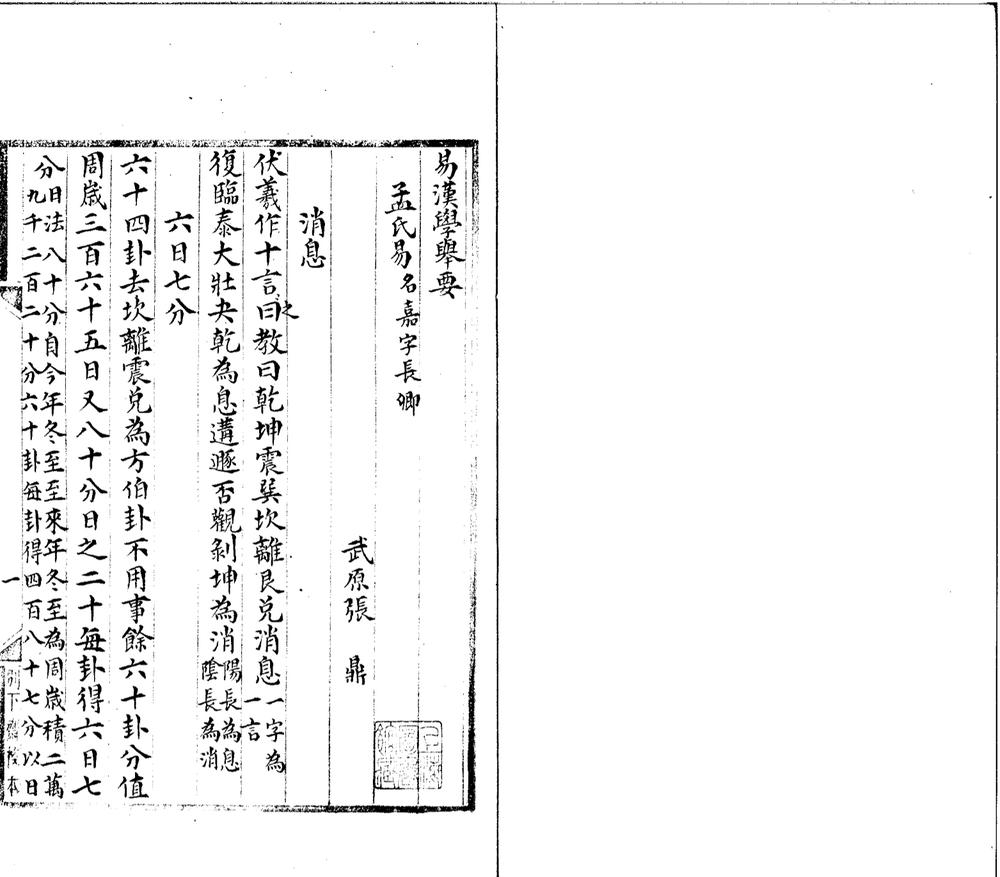 易漢學舉要
孟氏易名嘉字長卿
武原張 鼎
消息
伏羲作十言曰之教曰乾坤震巽坎離艮兌消息一字為一言
復臨泰大壯夬乾為息遘遯否觀剝坤為消陽長為息陰長為消
六日七分
六十四卦去坎離震兌為方伯卦不用事餘六十卦分值
周歲三百六十五日又八十分日之二十每卦得六日七
分日法八十分自今年冬至至來年冬至為周歲積二萬
九千二百二十分六十卦每卦得四百八十七分以日
一
別下齋校本